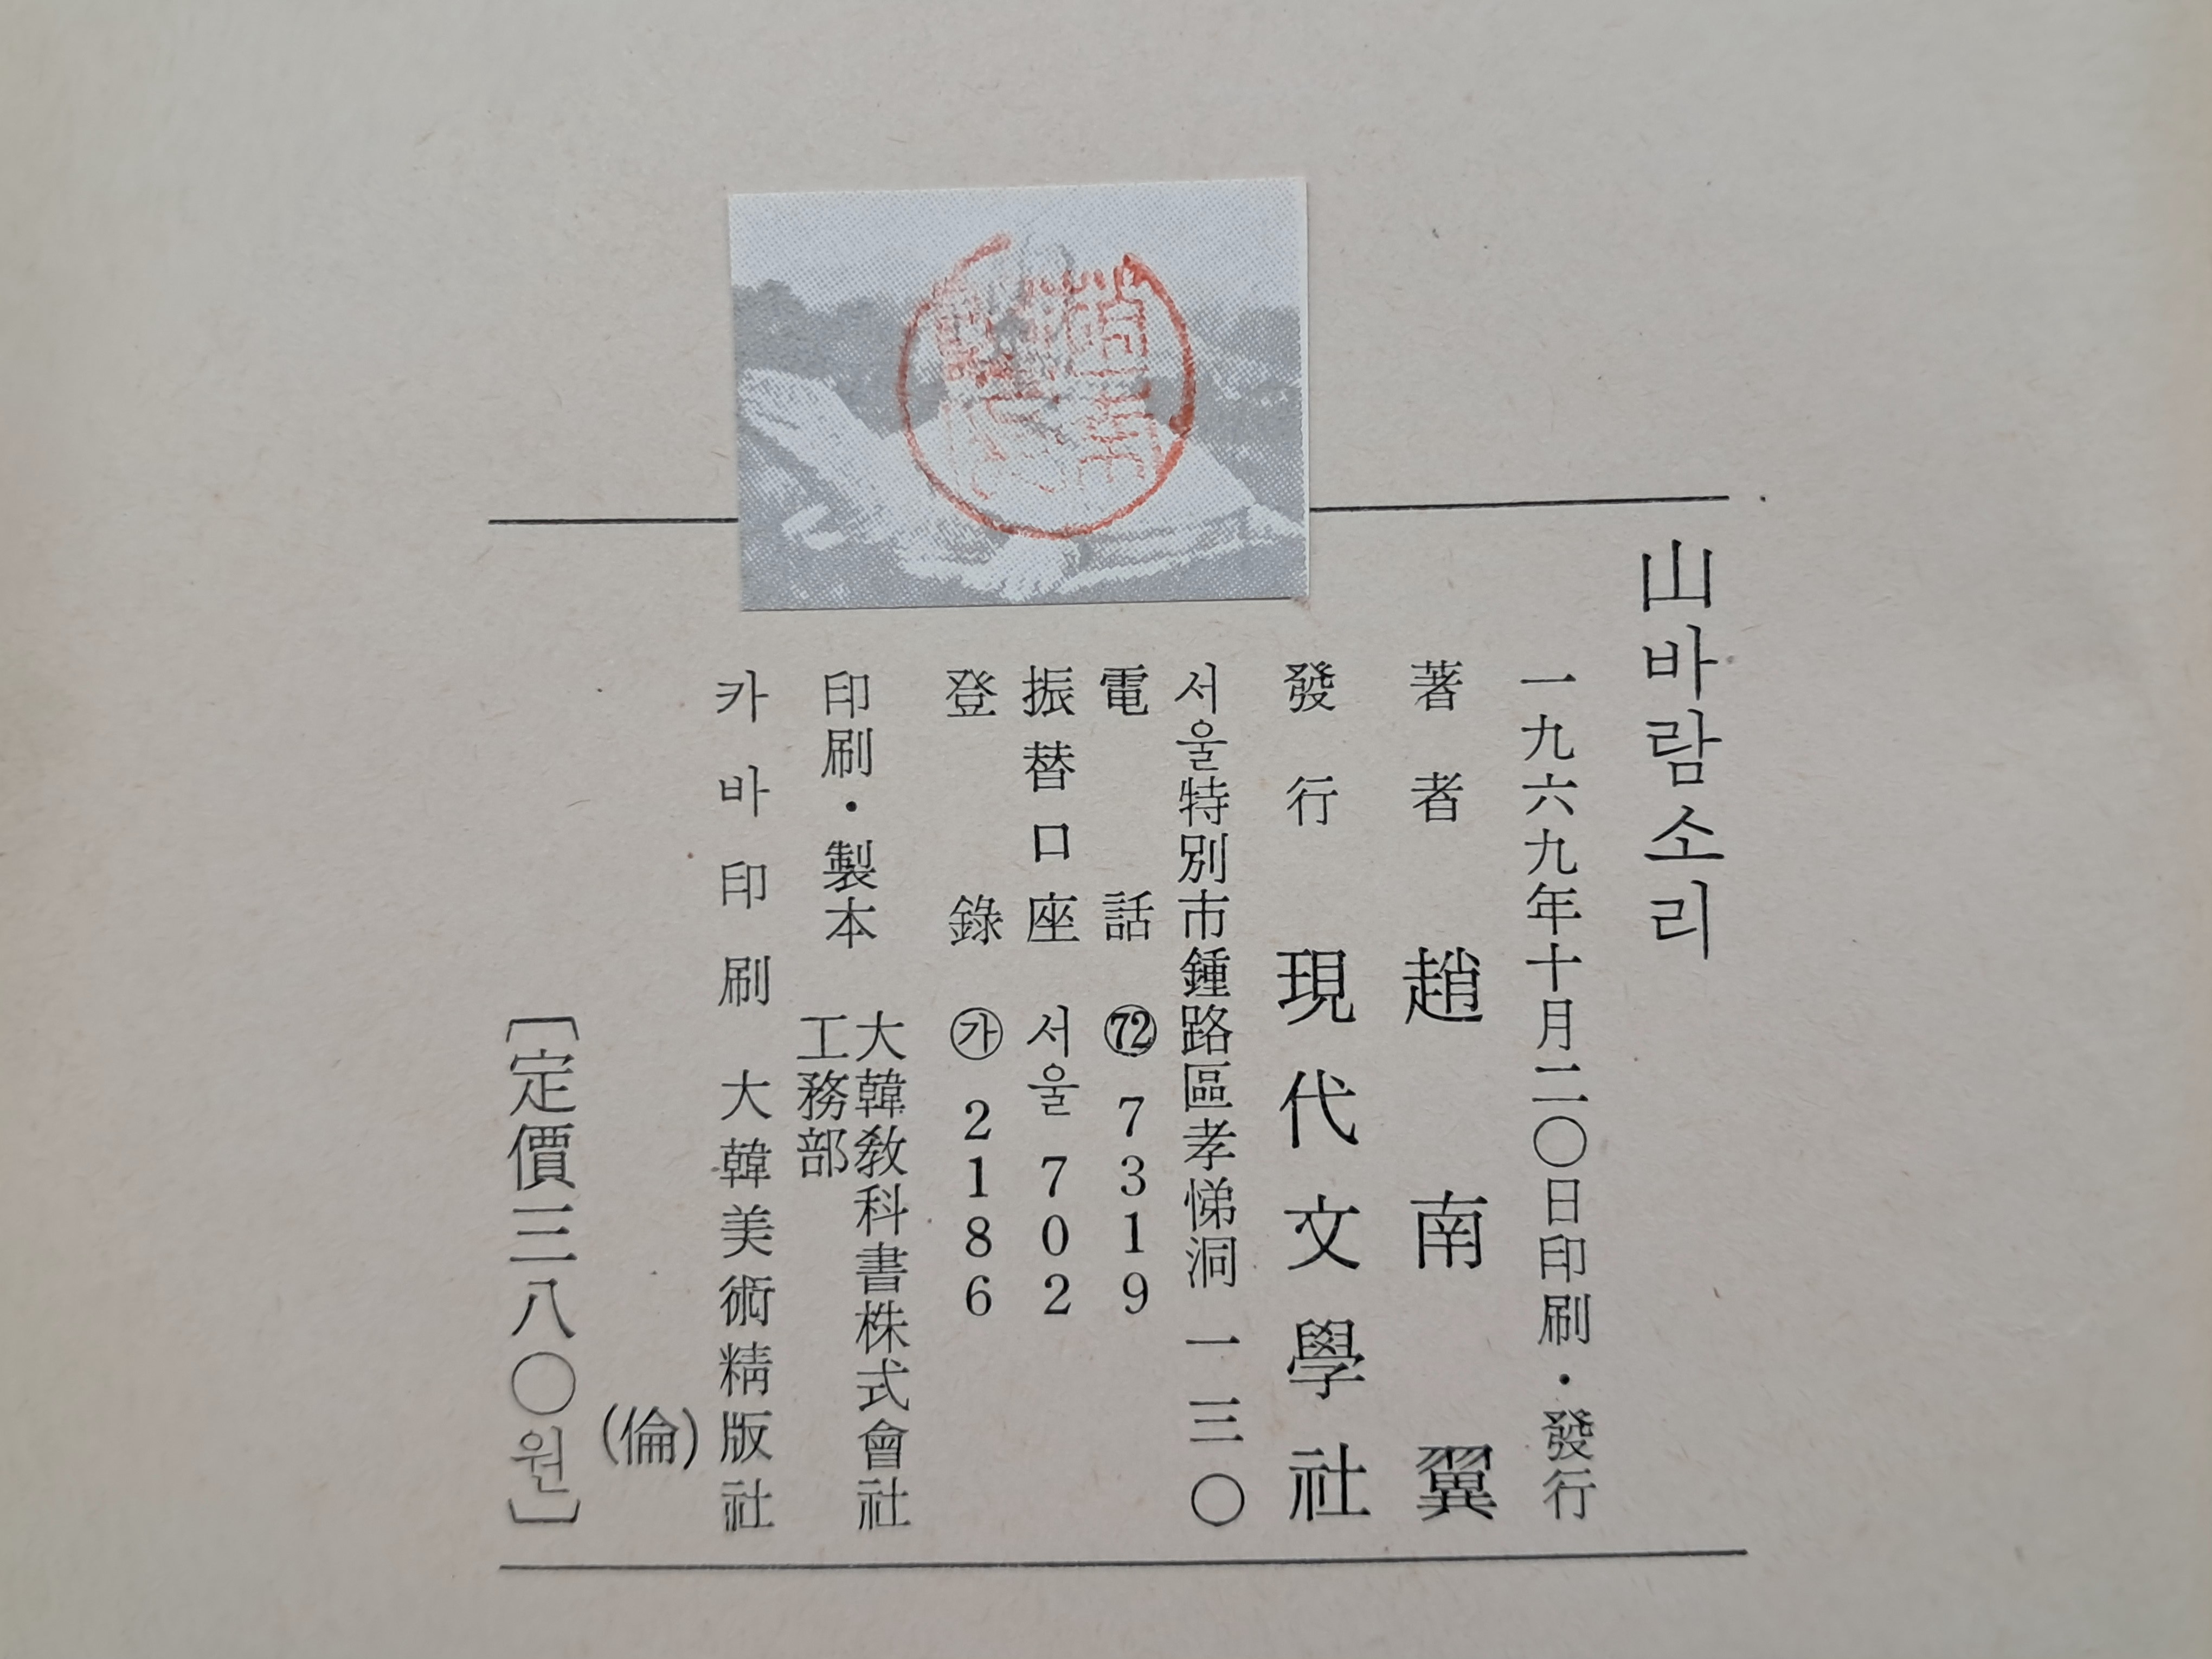 山바람소리
一九六九年十月二〇日印刷・發行
著者 趙南翼
發行 現代文學社
서울特別市鍾路區孝悌洞 一三〇
電話 ㊆㊁ 7319
振替口座 서울 702
登錄 ㉮ 2186
印刷・製本 大韓敎科書株式會社
工務部
카바印刷 大韓美術精版社
(倫)
〔定價三八〇원〕